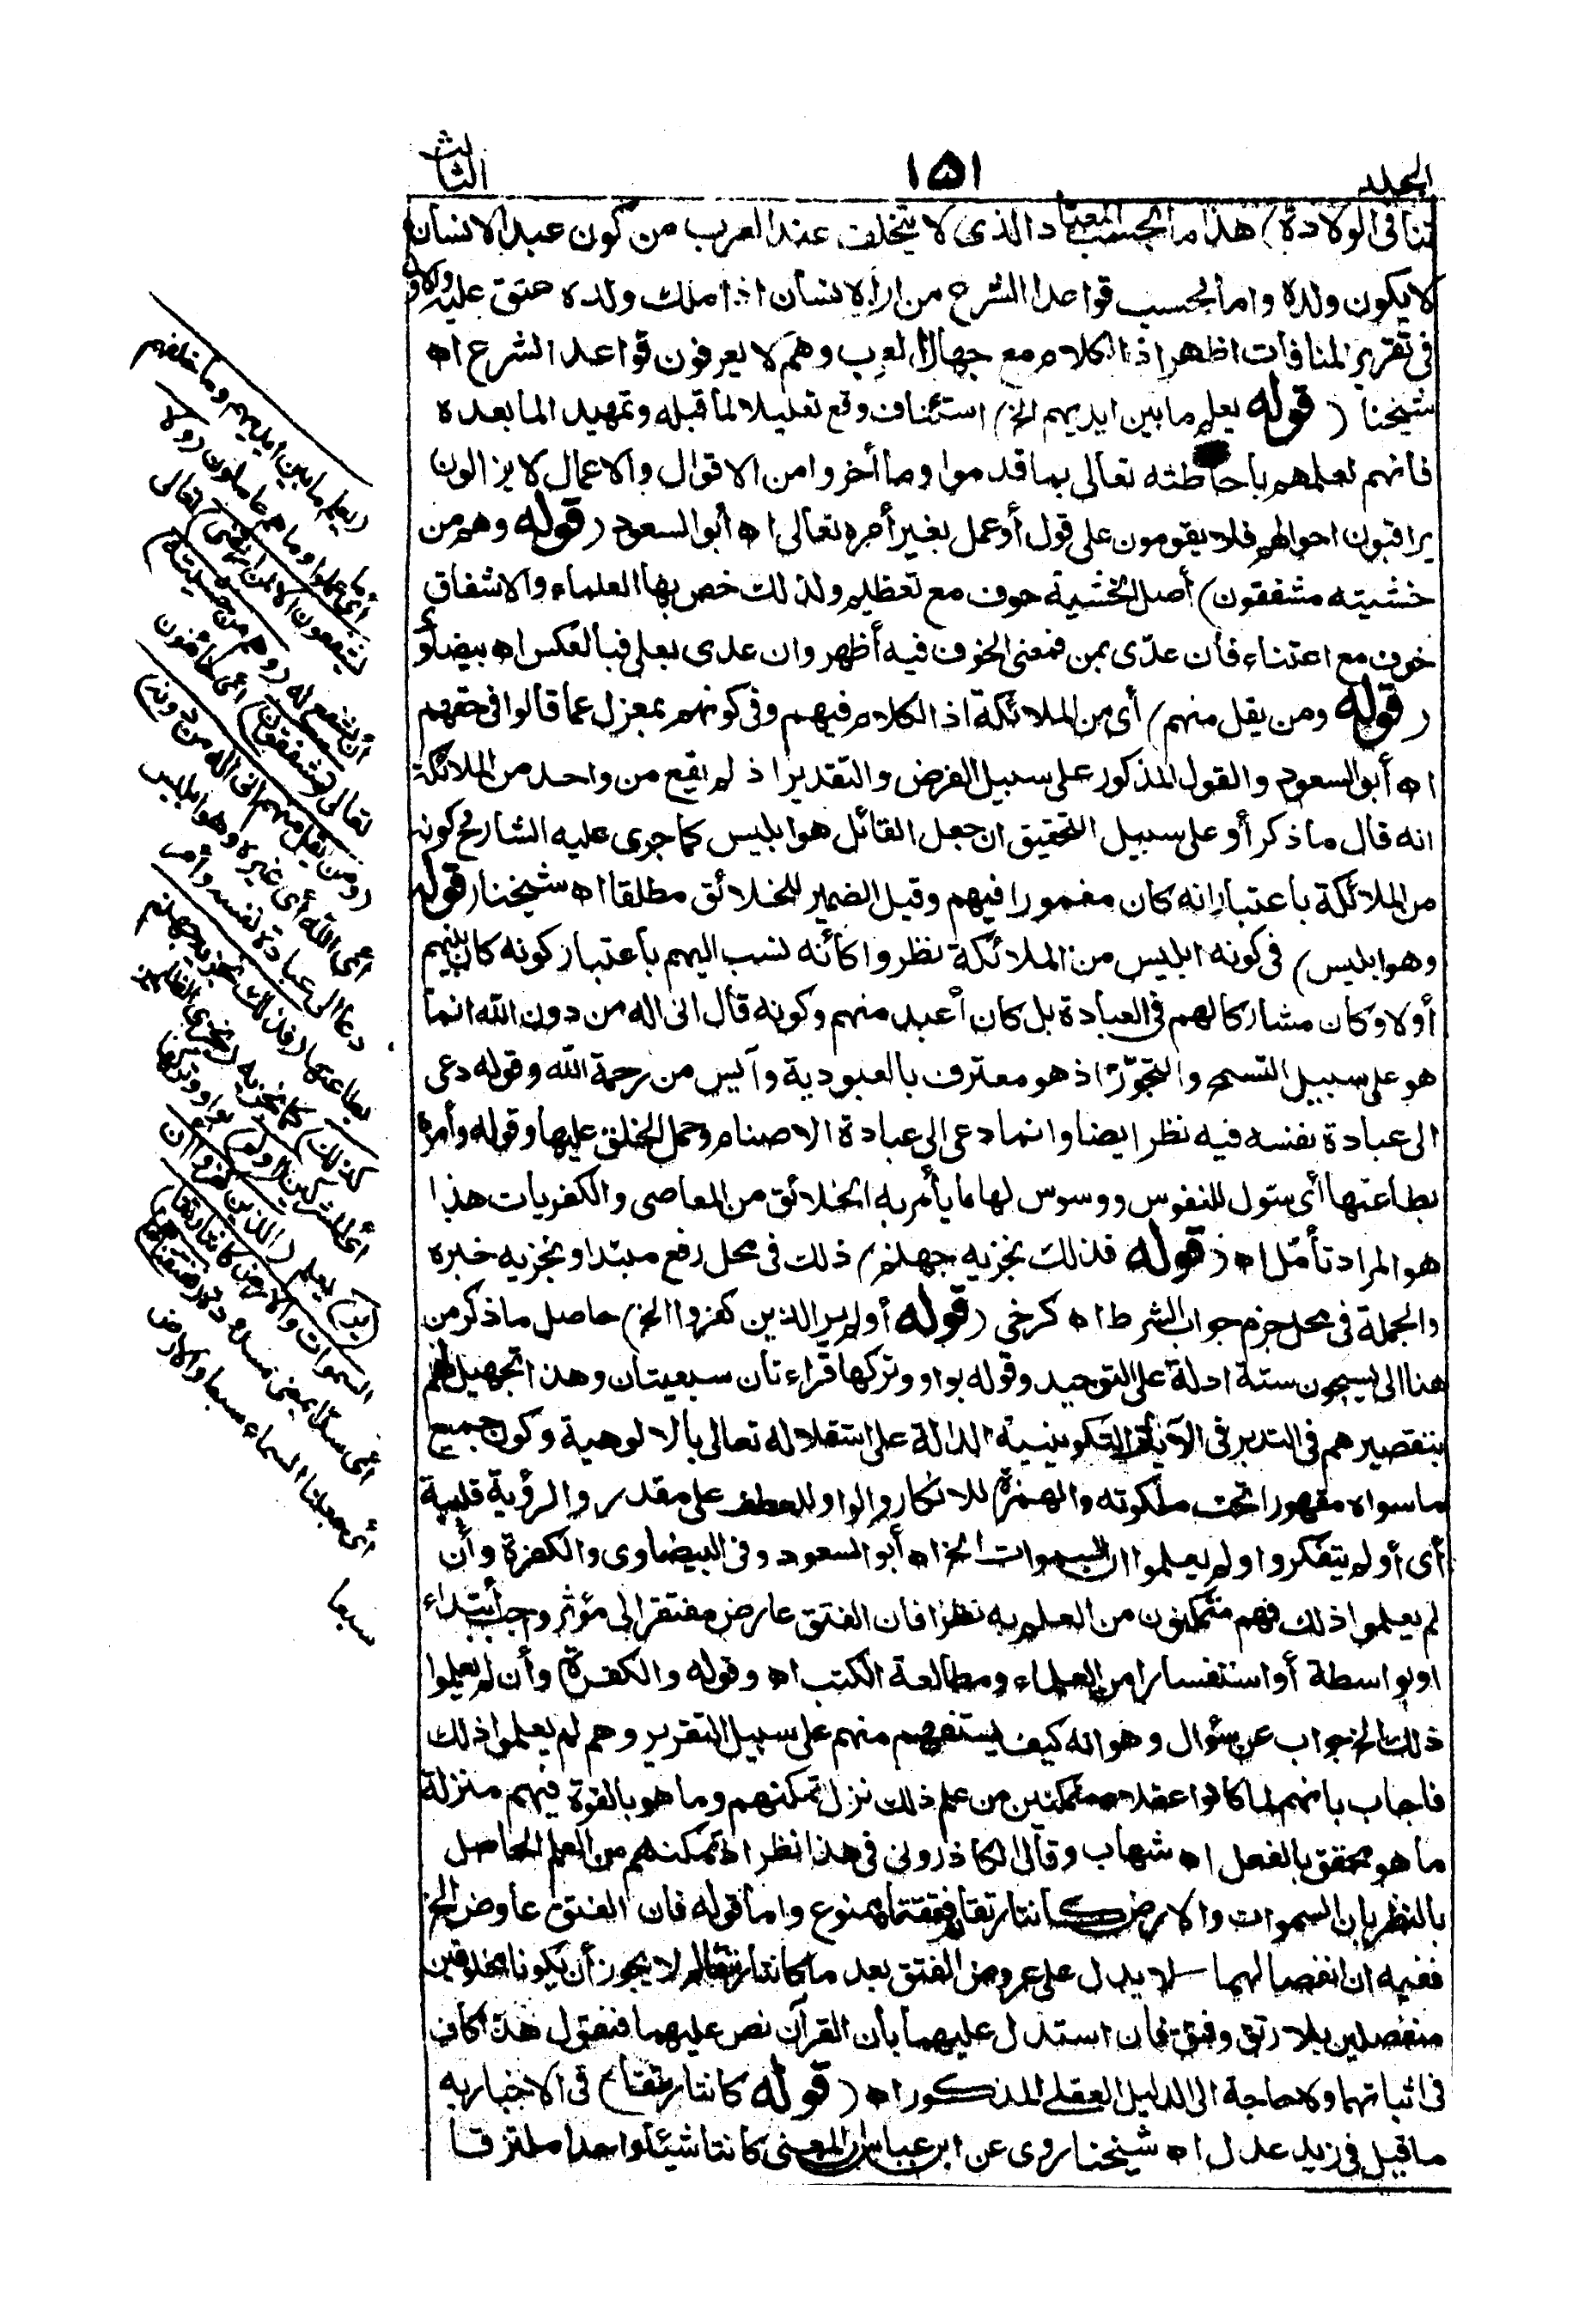 المجلد
١٥١
الثالث
تنافى الولادة) هذا ما بحسب المعتاد الذى لا يتخلف عند العرب من كون عبد الانسان
لا يكون ولده واما بحسب قواعد الشرع من ان الانسان اذا ملك ولده عتق عليه والاول
فى تقرير المنافات اظهر اذ الكلام مع جهال العرب وهم لا يعرفون قواعد الشرع اه
شيخنا (قوله يعلم ما بين ايديهم الخ) استئناف وقع تعليلا لما قبله وتمهيد الما بعده
فانهم لعلمهم باحاطته تعالى بما قدموا وما أخروا من الاقوال والاعمال لا يزالون
يراقبون احوالهم فلا يقومون على قول أو عمل بغير أمره تعالى اه أبو السعود (قوله وهم من
خشيته مشفقون) أصل الخشية خوف مع تعظيم ولذلك خص بها العلماء والاشفاق
خوف مع اعتناء فان عدّى بمن فمعنى الخوف فيه أظهر وان عدى بعلى فبالعكس اه بيضاوى
(قوله ومن يقل منهم) أى من الملائكة اذ الكلام فيهم وفى كونهم بمعزل عما قالوا فى حقهم
اه أبو السعود والقول المذكور على سبيل الفرض والتقدير اذ لم يقع من واحد من الملائكة
انه قال ما ذكر أو على سبيل التحقيق ان جعل القائل هو ابليس كما جرى عليه الشارح كونه
من الملائكة باعتبار انه كان مغمورا فيهم وقيل الضمير للخلائق مطلقا اه شيخنا (قوله
وهو ابليس) فى كونه ابليس من الملائكة نظر وا كأنه نسب اليهم باعتبار كونه كان بينهم
أولا وكان مشاركا لهم فى العبادة بل كان أعبد منهم وكونه قال انى اله من دون الله انما
هو على سبيل التسمح والتجوّز اذ هو معترف بالعبودية وآيس من رحمة الله وقوله دعى
الى عبادة نفسه فيه نظر ايضا وانما دعى الى عبادة الاصنام وحمل الخلق عليها وقوله وأمر
بطاعتها أى سول للنفوس ووسوس لها ما يأمر به الخلائق من المعاصى والكفريات هذا
هو المراد تأمّل اه (قوله فذلك نجزيه جهنم) ذلك فى محل رفع مبتدا ونجزيه خبره
والجملة فى محل جزم جواب الشرط اه كرخى (قوله أولم ير الذين كفروا الخ) حاصل ما ذكر من
هنا الى يسبحون ستة ادلة على التوحيد وقوله بواو وتركها قراءتان سبعيتان وهذا تجهيل لهم
بتقصيرهم فى التدبر فى الآيات التكوينية الدالة على استقلاله تعالى بالالوهية وكون جميع
ما سواه مقهورا تحت ملكوته والهمزة للانكار والواو للعطف على مقدر والرؤية قلبية
أى أولم يتفكروا ولم يعلموا ان السموات الخ اه أبو السعود وفى البيضاوى والكفرة وأن
لم يعلموا ذلك فهم متمكنون من العلم به نظرا فان الفتق عارض مفتقر الى مؤثر وجب ابتداء
او بواسطة أو استفسارا من العلماء ومطالعة الكتب اه وقوله والكفرة وأن لم يعلموا
ذلك الخ جواب عن سؤال وهو انه كيف يستفهم منهم على سبيل التقرير وهم لم يعلموا ذلك
فاجاب بانهم لما كانوا عقلاء متمكنين من علم ذلك نزل تمكنهم وما هو بالقوة فيهم منزلة
ما هو محقق بالفعل اه شهاب وقال الكاذرونى فى هذا نظر اذ تمكنهم من العلم الحاصل
بالنظر بان السموات والارض كانتا رتقا ففتقتا ممنوع واما قوله فان الفتق عارض الخ
ففيه ان انفصالهما لا يدل على عروض الفتق بعد ما كانتا رتقا لم لا يجوز أن يكونا مخلوقين
منفصلين بلا رتق وفتق فان استدل عليهما بأن القرآن نص عليهما فنقول هذا كاف
فى اثباتهما ولا حاجة الى الدليل العقلى المذكور اه (قوله كانتا رتقا) فى الاخبار به
ما قيل فى زيد عدل اه شيخنا روى عن ابن عباس ان المعنى كانتا شيئا واحدا ملتزقا
(يعلم ما بين ايديهم وما خلفهم
أى ما عملوا وما هم عاملون (ولا
يشفعون الا لمن ارتضى) تعالى
أن يشفع له (وهم من خشيته)
تعالى (مشفقون) اى خائفون
(ومن يقل منهم انى اله من دونه)
اى الله أى غيره وهو ابليس
دعا الى عبادة نفسه وأمر
بطاعتها (فذلك نجزيه جهنم
كذلك) كما نجزيه (نجزى الظالمين)
أى المشركين (أولم) بواو وتركها
(ير) يعلم (الذين كفروا ان
السموات والارض كانتا رتقا)
اى سدا بمعنى مسدودة (ففتقناهما)
أى جعلنا السماء سبعا والارض
سبعا